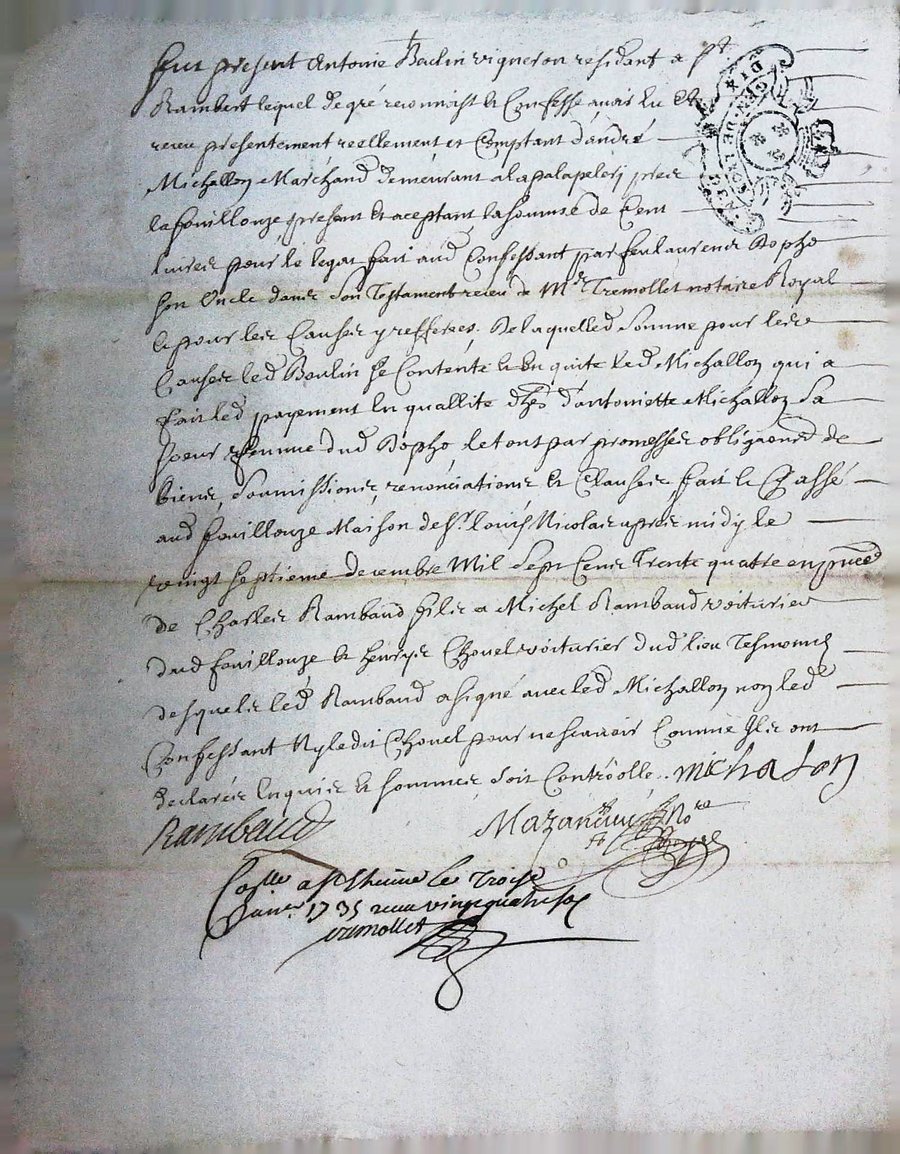 Fut present Antoine Baclin vigneron residant a St
Rambert lequel de gré reconnoist et Confesse avoir eu et
receu presentement reellement et Comptant d'andré
Michallon Marchand demeurant a la pres
la fouillouze present et aceptant la somme de Cent
livres pour le legat fait aud Confessant par feu laurens Bopho
son Oncle dans son Testament receu de Mr Tremollet notaire Royal
et pour les Causes y refferees. De laquelled Somme pour lesd
Causes led Boulin se Contente et en quite led Michallon qui a
fait led payement en quallite d'antoinette Michallon sa
soeur femme dud Bopho le tout par promesses obligaons de
biens, soumissions, renonciations et Clauses, fait et Passé
aud fouillouze Maison de Sr. louis Nicolas apres midy le
vingt septieme decembre Mil Sept Cens Trente quatre en pnce
de Charles Rambaud fils a Michel Rambaud voiturier
dud fouillouze et henrys Chovel voiturier dud lieu Tesmoins
desquels led Rambaud a signé avec led Michallon non led
Confessant Ny ledit Chovel pour ne scavoir Comme Ils ont
declarés Enquis et sommés, soit Controolle. michalon
Rambaud Mazan Nore
Royal
Coslle a St Etienne le Trois
Janer. 1735 receu vingt quatre sols
tremollet